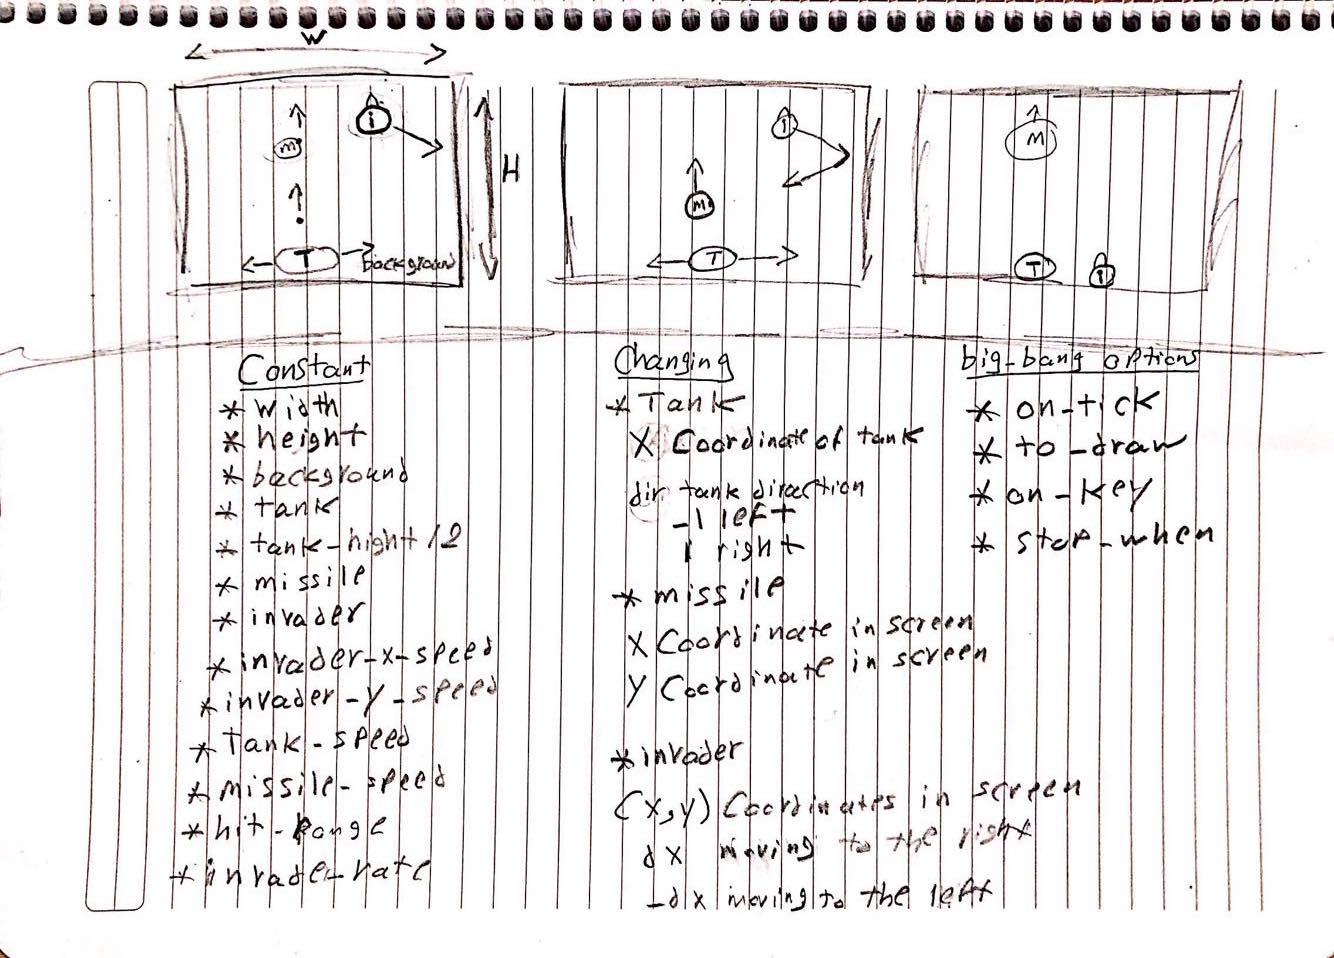 W
i
m
H
T
background
i
m
T
M
T
i
Constant
* width
* height
* background
* tank
* tank-hight/2
* missile
* invader
* invader-x-speed
* invader-y-speed
* Tank-speed
* missile-speed
* hit-range
* invader-rate
Changing
* Tank
X Coordinate of tank
dir tank diraction
-1 left
1 right
* missile
X Coordinate in screen
y Coordinate in screen
* invader
(x,y) Coordinates in screen
dx moving to the right
-dx moving to the left
big-bang options
* on-tick
* to-draw
* on-key
* stop-when